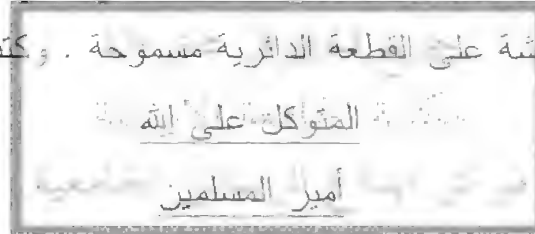 شة على القطعة الدائرية مسموحة . وكتب
المتواكل على الله
أمير المسلمين